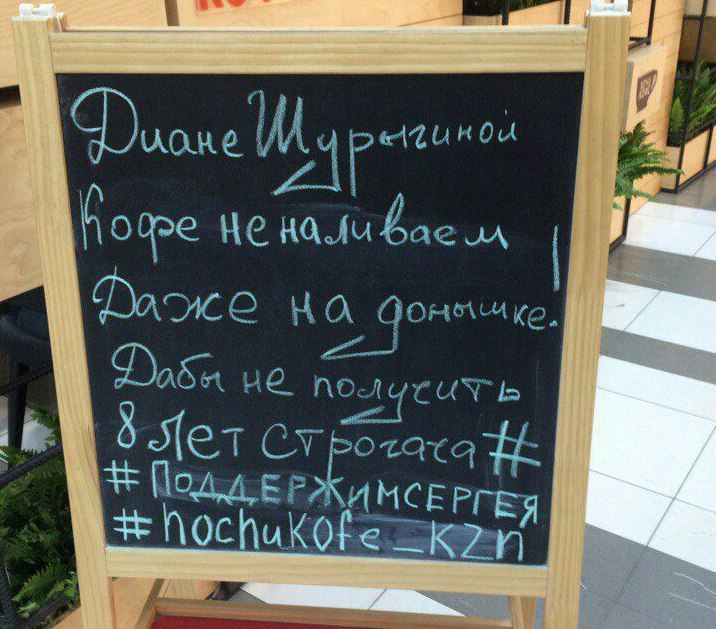 Диане Шурыгиной
Кофе не наливаем
Даже на донышке!
Дабы не получить
8 лет строгача #
#ПОДДЕРЖИМСЕРГЕЯ
#hochukofe_kzn